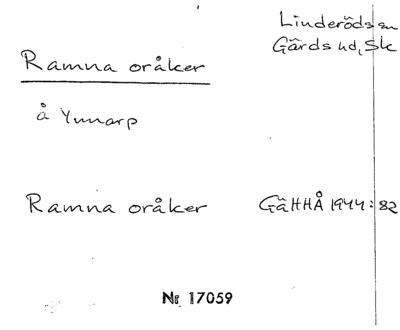 Linderöds sn
Gärds hd, Sk
Ramna oråker
å Ynnarp
Ramna oråker GäHHÅ 1944:82
Nr 17059